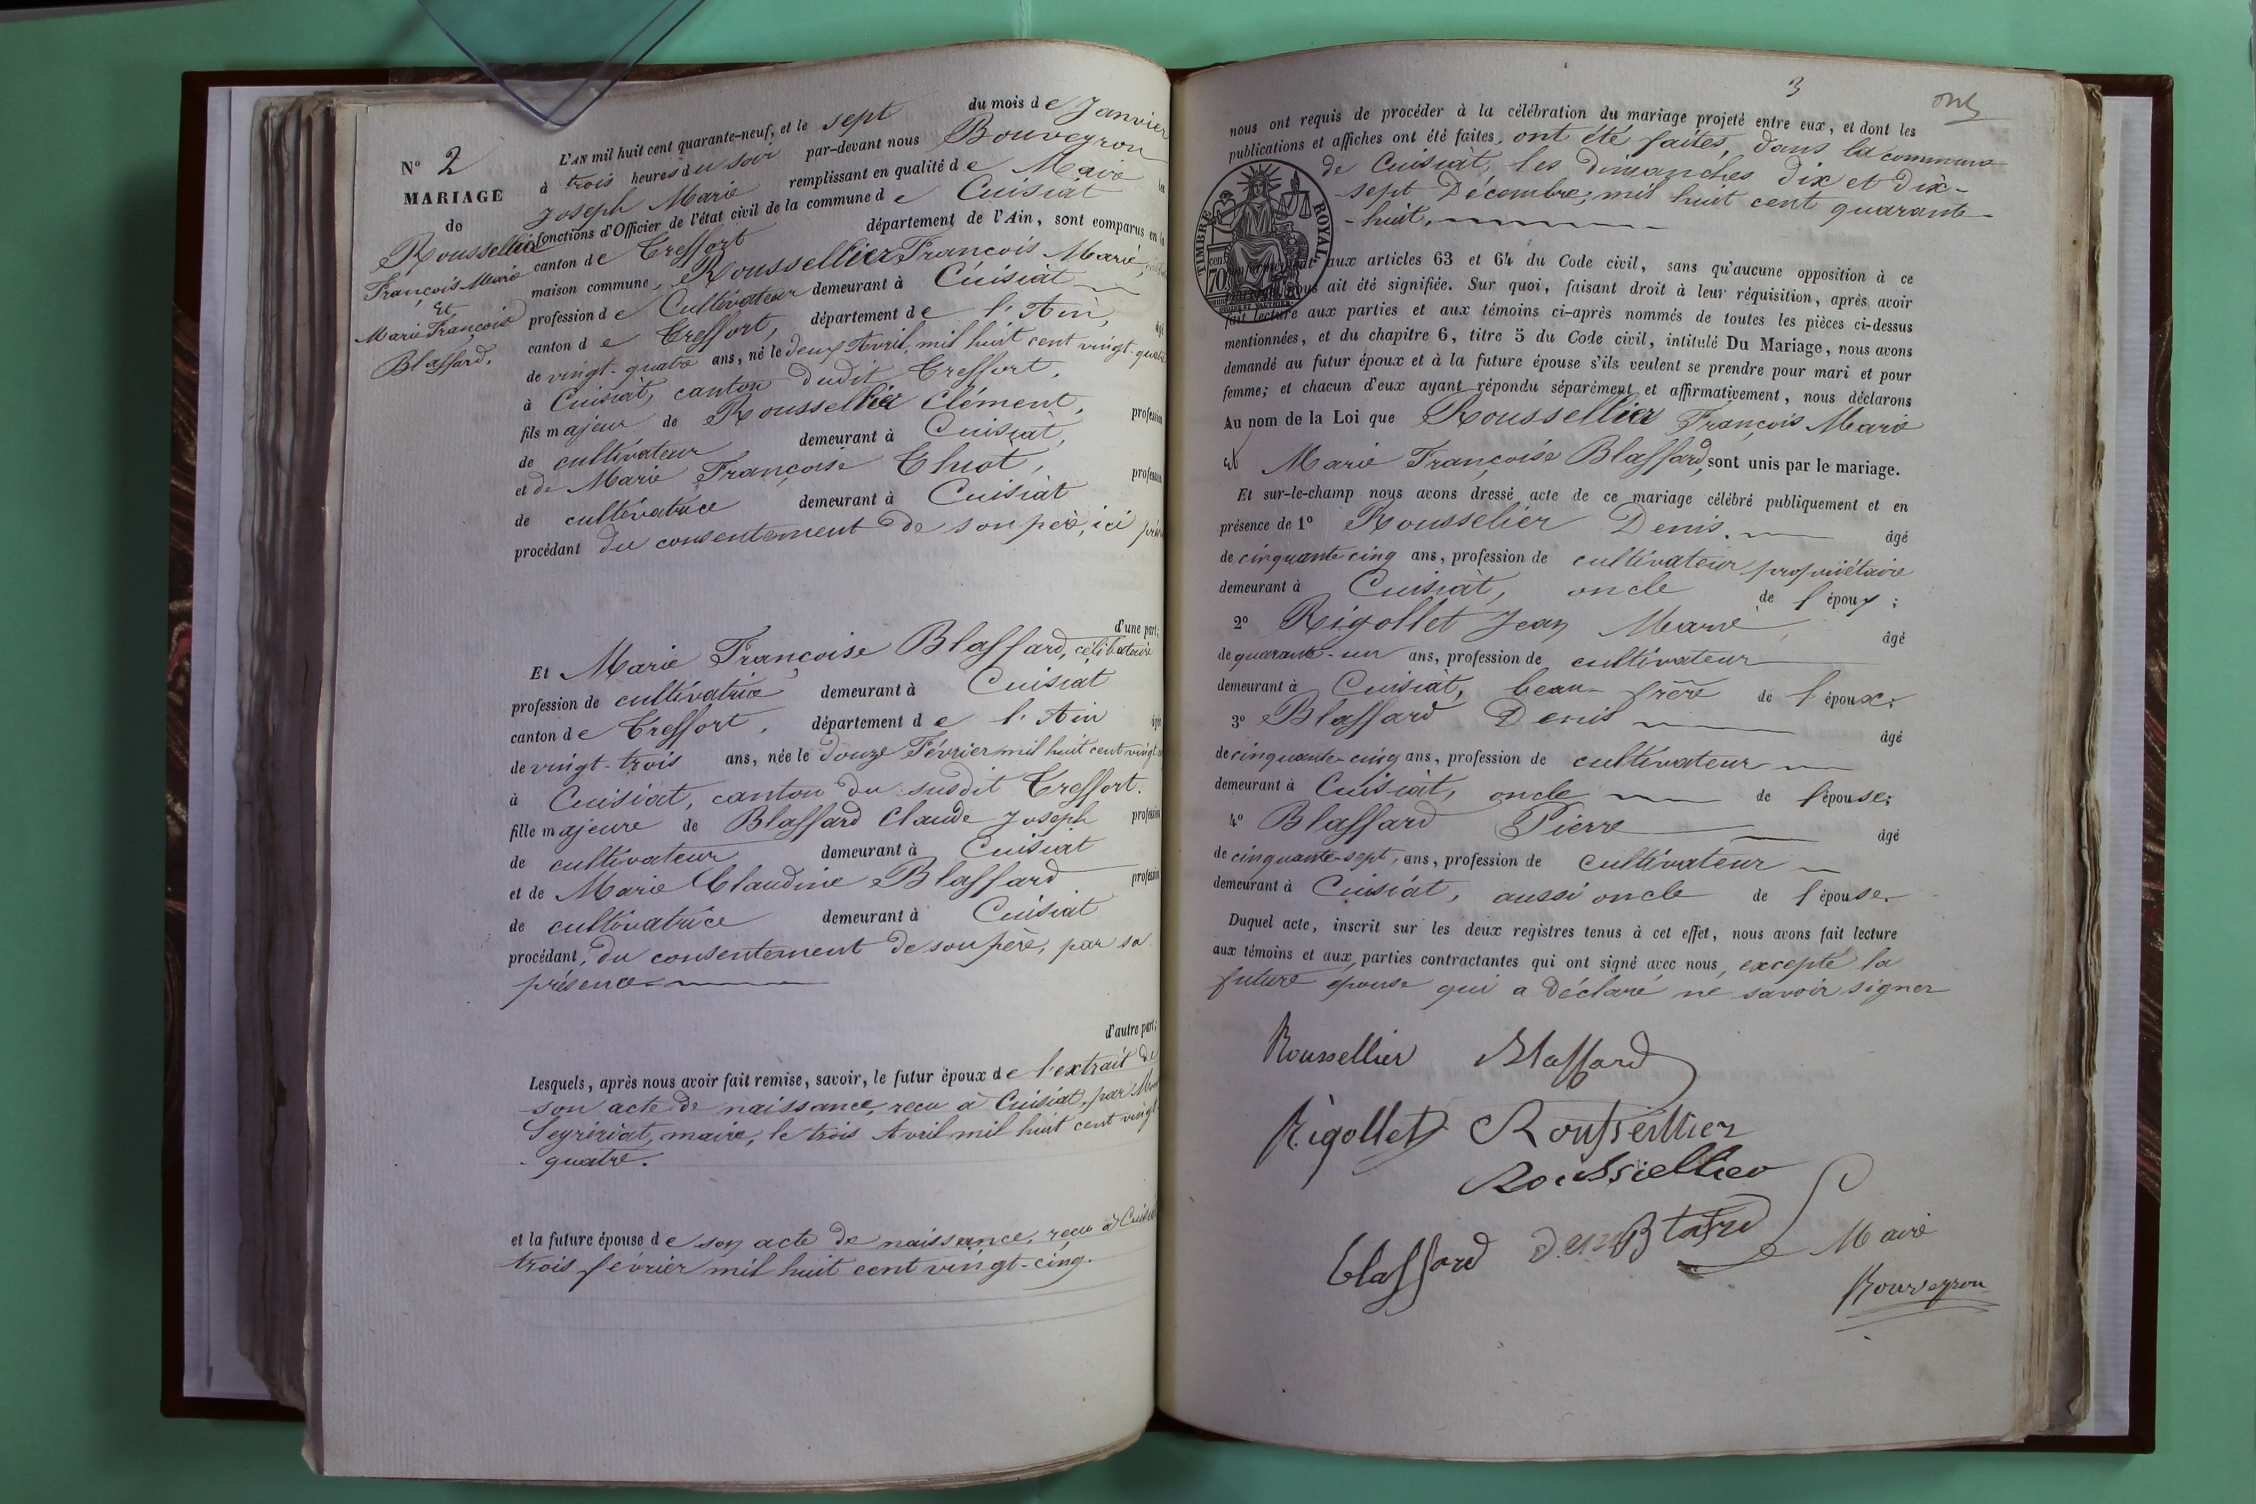 N° 2
MARIAGE
de
Roussellier
François Marie
Et
Marie Françoise
Blaffard.
L'AN mil huit cent quarante-neuf, et le sept du mois de Janvier
à trois heures du soir par-devant nous Bouveyron
Joseph Marie remplissant en qualité de Maire les
fonctions d'Officier de l'état civil de la commune de Cuisiat
canton de Treffort département de l'Ain, sont comparus en la
maison commune, Roussellier François Marie,
profession de Cultivateur demeurant à Cuisiat
canton de Treffort, département de l'Ain, âgé
de vingt-quatre ans, né le deux Avril, mil huit cent vingt-quatre
à Cuisiat, canton dudit Treffort,
fils majeur de Roussellier Clément, profession
de cultivateur demeurant à Cuisiat,
et de Marie Françoise Chrot, profession
de cultivatrice demeurant à Cuisiat
procédant du consentement de son père, ici
d'une part;
Et Marie Françoise Blaffard, célibataire
profession de cultivatrice demeurant à Cuisiat
canton de Treffort, département de l'Ain âgée
de vingt-trois ans, née le douze Février mil huit cent vingt
à Cuisiat, canton du susdit Treffort.
fille majeure de Blaffard Claude Joseph profession
de cultivateur demeurant à Cuisiat
et de Marie Claudine Blaffard profession
de cultivatrice demeurant à Cuisiat
procédant, du consentement de son père, par sa
présence
d'autre part;
Lesquels, après nous avoir fait remise, savoir, le futur époux de l'extrait de
son acte de naissance, recu à Cuisiat, par
maire, le trois Avril mil huit cent vingt
quatre.
et la future épouse de son acte de naissance, reçu à Cuisiat
trois février mil huit cent vingt-cinq.
3
nous ont requis de procéder à la célébration du mariage projeté entre eux, et dont les
publications et affiches ont été faites, ont été faites, dans la commune
de Cuisiat, les dimanches dix et dix-
sept Décembre, mil huit cent quarante-
-huit,
TIMBRE ROYAL
70
aux articles 63 et 64 du Code civil, sans qu'aucune opposition à ce
nous ait été signifiée. Sur quoi, faisant droit à leur réquisition, après avoir
fait lecture aux parties et aux témoins ci-après nommés de toutes les pièces ci-dessus
mentionnées, et du chapitre 6, titre 5 du Code civil, intitulé Du Mariage, nous avons
demandé au futur époux et à la future épouse s'ils veulent se prendre pour mari et pour
femme; et chacun d'eux ayant répondu séparément et affirmativement, nous déclarons
Au nom de la Loi que Roussellier François Marie
et Marie Françoise Blaffard, sont unis par le mariage.
Et sur-le-champ nous avons dressé acte de ce mariage célébré publiquement et en
présence de 1° Rousselier Denis. âgé
de cinquante cinq ans, profession de cultivateur propriétaire
demeurant à Cuisiat, oncle de l'époux;
2° Rigollet Jean Marie, âgé
de quarante-un ans, profession de cultivateur
demeurant à Cuisiat, beau-frère de l'époux.
3° Blaffard Denis âgé
de cinquante-cinq ans, profession de cultivateur
demeurant à Cuisiat, oncle de l'épouse;
4° Blaffard Pierre âgé
de cinquante-sept, ans, profession de cultivateur
demeurant à Cuisiat, aussi oncle de l'épouse.
Duquel acte, inscrit sur les deux registres tenus à cet effet, nous avons fait lecture
aux témoins et aux parties contractantes qui ont signé avec nous, excepté la
future épouse qui a déclaré ne savoir signer
Roussellier Blaffard
Rigollet Roussellier
Roussiellier
blaffard
Le Maire
Bouveyron